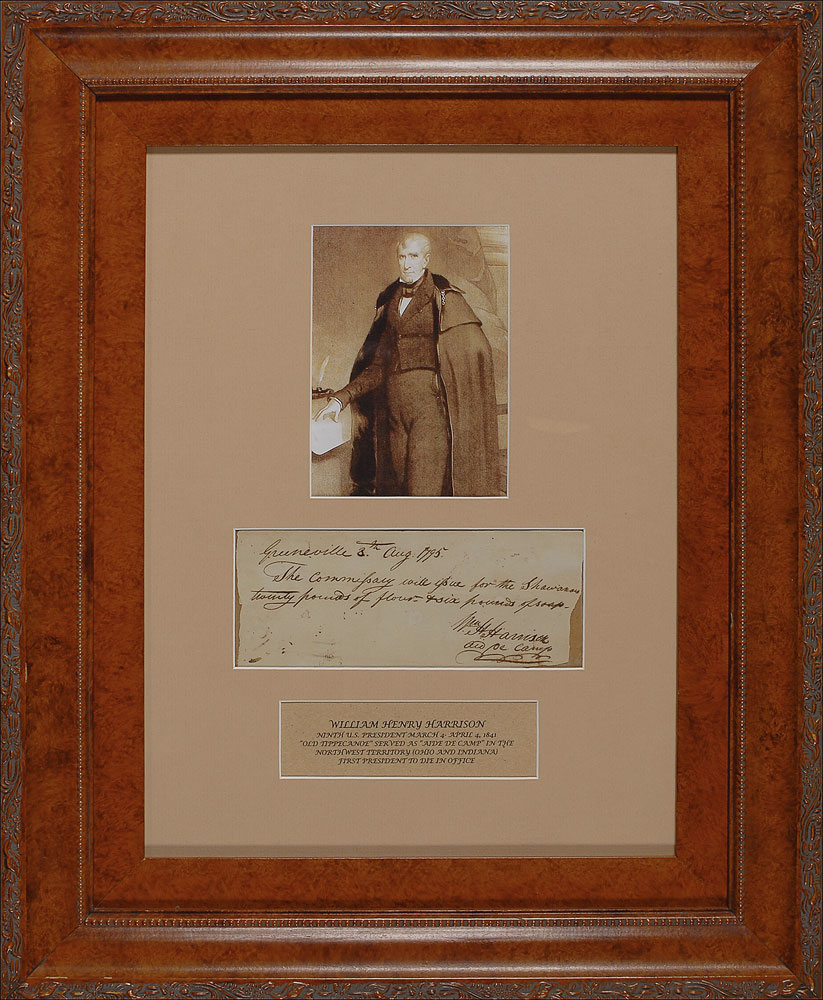 Greeneville 3.th Aug. 1795.
The Commissary will issue for the Shawanos
twenty pounds of flour & six pounds of soap.
Wm. H. Harrison
aid de camp
WILLIAM HENRY HARRISON
NINTH U.S. PRESIDENT MARCH 4- APRIL 4, 1841
"OLD TIPPECANOE" SERVED AS "AIDE DE CAMP" IN THE
NORTHWEST TERRITORY (OHIO AND INDIANA)
FIRST PRESIDENT TO DIE IN OFFICE